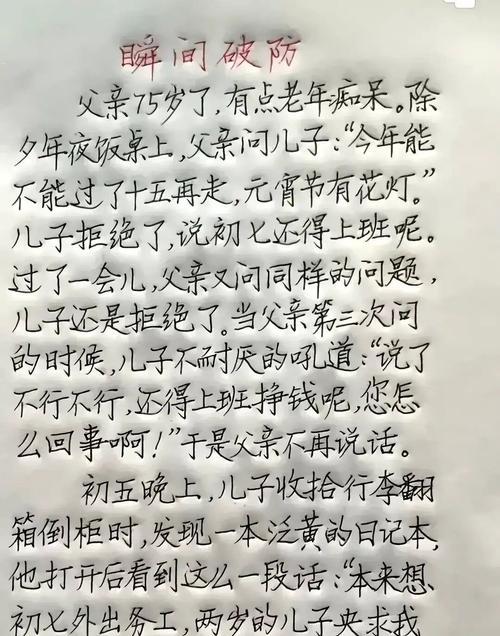 瞬间破防
父亲75岁了,有点老年痴呆。除
夕年夜饭桌上,父亲问儿子:“今年能
不能过了十五再走,元宵节有花灯。”
儿子拒绝了,说初七还得上班呢。
过了一会儿,父亲又问同样的问题,
儿子还是拒绝了。当父亲第三次问
的时候,儿子不耐厌的吼道:“说了
不行不行,还得上班挣钱呢,您怎
么回事啊!”于是父亲不再说话。
初五晚上,儿子收拾行李翻
箱倒柜时,发现一本泛黄的日记本,
他打开后看到这么一段话:“本来想、
初七外出务工,两岁的儿子央求我